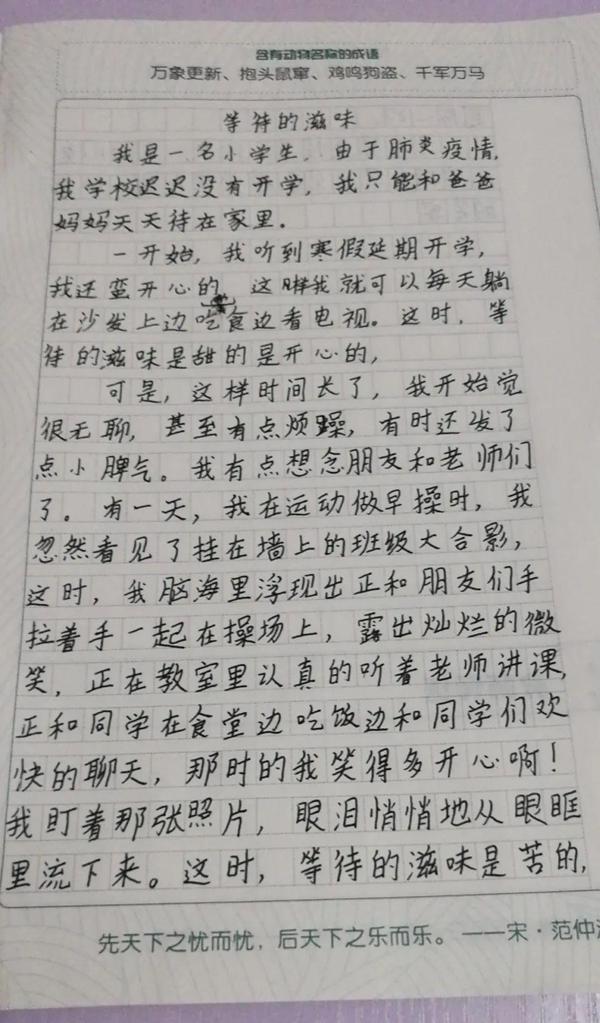 含有动物名称的成语
万象更新、抱头鼠窜、鸡鸣狗盗、千军万马
等待的滋味
我是一名小学生，由于肺炎疫情，
我学校迟迟没有开学，我只能和爸爸
妈妈天天待在家里。
一开始，我听到寒假延期开学，
我还蛮开心的，这样我就可以每天躺
在沙发上边吃食边看电视。这时，等
待的滋味是甜的是开心的，
可是，这样时间长了，我开始觉
很无聊，甚至有点烦躁，有时还发了
点小脾气。我有点想念朋友和老师们
了。有一天，我在运动做早操时，我
忽然看见了挂在墙上的班级大合影，
这时，我脑海里浮现出正和朋友们手
拉着手一起在操场上，露出灿烂的微
笑，正在教室里认真的听着老师讲课，
正和同学在食堂边吃饭边和同学们欢
快的聊天，那时的我笑得多开心啊！
我盯着那张照片，眼泪悄悄地从眼眶
里流下来。这时，等待的滋味是苦的，
先天下之忧而忧，后天下之乐而乐。——宋·范仲